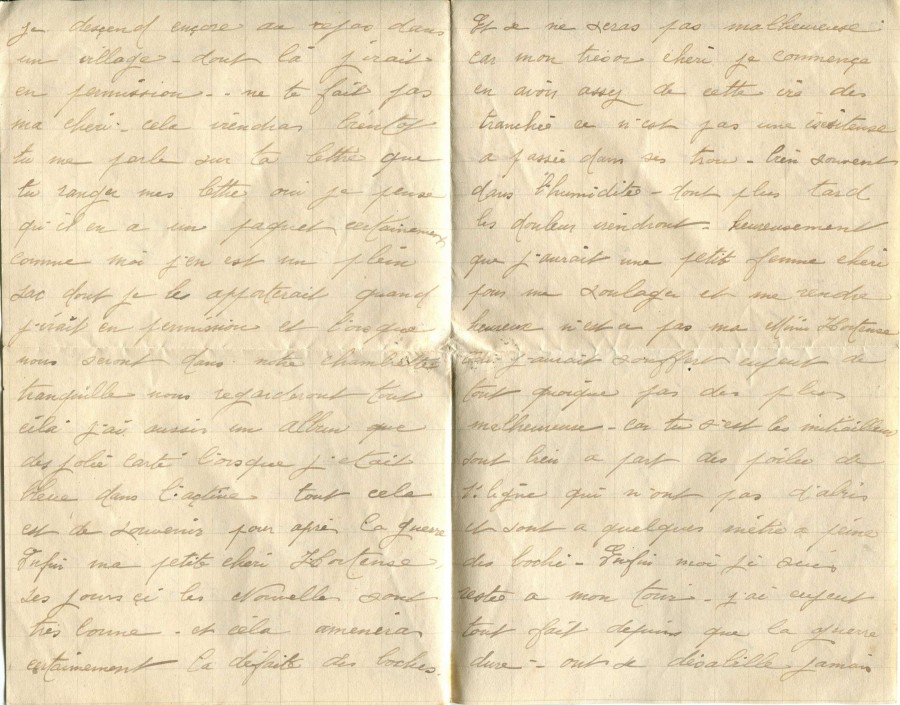 je descend encore au repos dans
un village - dont là j'irait
en permission - - ne te fait pas
ma chéri - cela viendras bientot
tu me parle sur ta lettre que
tu ranger mes lettre oui je pense
qu'il en a un paquet certainement
comme moi j'en est un plein
sac dont je les apporterait quand
j'irait en permission et l'orsque
nous seront dans notre chambrette
tranquille nous regarderont tout
cela j'ai aussis un album que
des jolie carté l'orsque j'etait
dans l'active tout cela
est de souvenir pour aprè la guerre
Enfin ma petite chéri Hortense,
ses jours çi les Nouvelle sont
très bonne - et cela amenera
certainement la défaite des boches.
Et je ne seras pas malheureuse
car mon trésor chéri je commence
en avoir assez de cette vie des
tranchée ce n'est pas une existense
a passée dans ses trou - bien souvent
dans l'humidité - dont plus tard
les douleur viendront - heureusement
que j'aurait une petite femme chéri
pour me soulager et me rendre
heureux n'est a pas ma Mimi Hortense
j'aurait souffert de
tout quoique pas des plus
malheureuse - car tu s'est les mitrailleur
sont bien a part des poilus de
1e ligne qui n'ont pas d'abris
et sont a quelques mètre a peine
des boche - Enfin moi je suis
restée a mon tour - j'ai
tout fait depuis que la guerre
dure - jamais